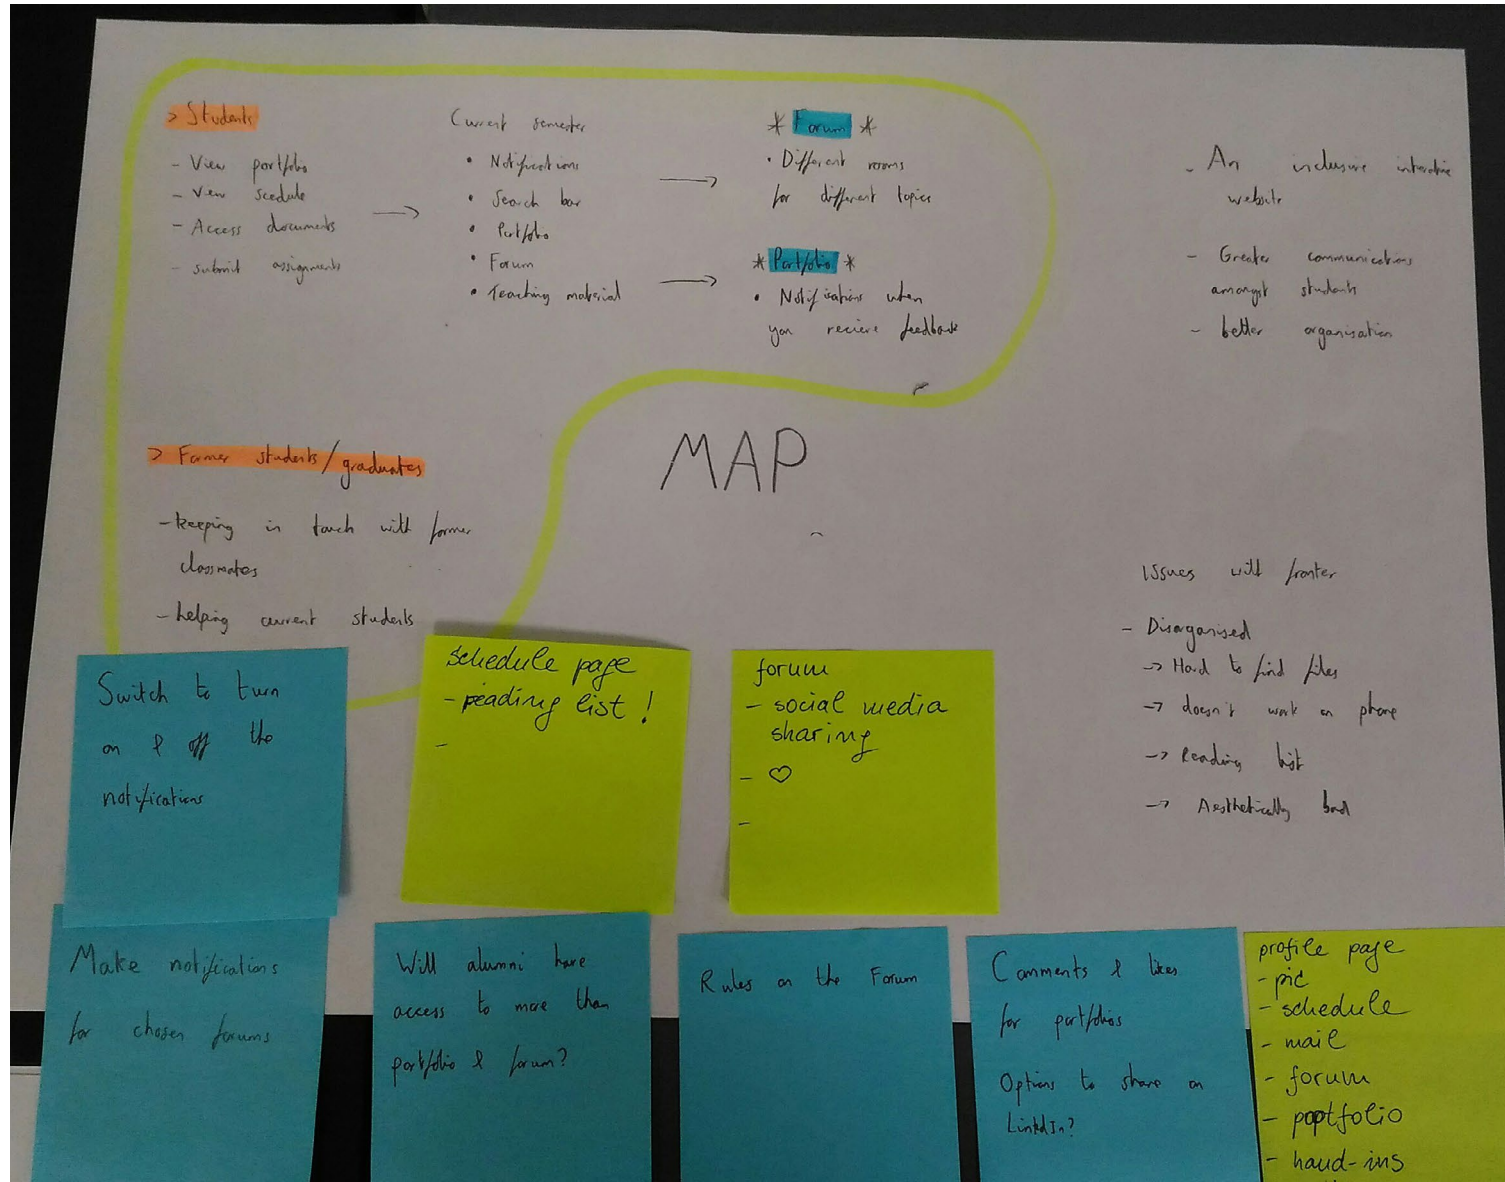 > Students
- View portfolio
- View scedule
- Access documents
- submit assignments
Current semester
• Notifications
• Search bar
• Portfolio
• Forum
• Teaching material
* Forum *
• Different rooms
for different topics
* Portfolio *
• Notifications when
you recieve feedback
- An inclusive interactive
website
- Greater communications
amongst students
- better organisation
MAP
> Former students/graduates
- keeping in touch with former
classmates
- helping current students
Issues with fronter
- Disorganised
-> Hard to find files
-> doesn't work on phone
-> Reading list
-> Aesthetically bad
Switch to turn
on & off the
notifications
Schedule page
- reading list!
-
forum
- social media
sharing
- ♡
-
Make notifications
for chosen forums
Will alumni have
access to more than
portfolio & forum?
Rules on the Forum
Comments & likes
for portfolios
Options to share on
LinkdIn?
profile page
- pic
- schedule
- mail
- forum
- portfolio
- hand-ins